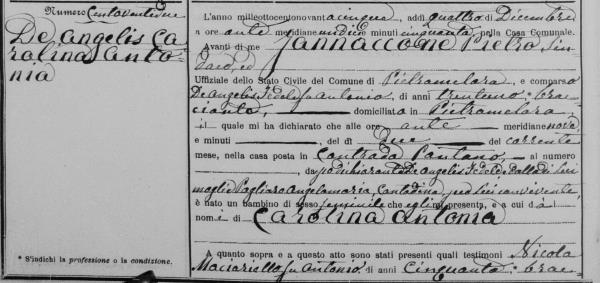 Numero Centoventidue
De Angelis Ca-
rolina Anto-
nia
* S'indichi la professione o la condizione.
L'anno milleottocentonovantacinque, addì quattro di Dicembre
a ore ante meridiane undici e minuti cinquanta, nella Casa Comunale.
Avanti di me Iannaccone Pietro, Sin-
daco, ed
Uffiziale dello Stato Civile del Comune di Pietramelara, è comparso
De Angelis Fedele fu Antonio, di anni trentuno, brac-
ciante, domiciliato in Pietramelara,
il quale mi ha dichiarato che alle ore ante meridiane nove,
e minuti del dì due del corrente
mese, nella casa posta in Contrada Pantano, al numero
da De Angelis Fedele, dalla di lui
moglie Pagliaro Angelamaria, Contadina, seco lui convivente,
è nato un bambino di sesso femminile che egli mi presenta, e a cui dà i
nomi di Carolina Antonia
A quanto sopra e a questo atto sono stati presenti quali testimoni Nicola
Maciariello fu Antonio di anni Cinquanta, brac-